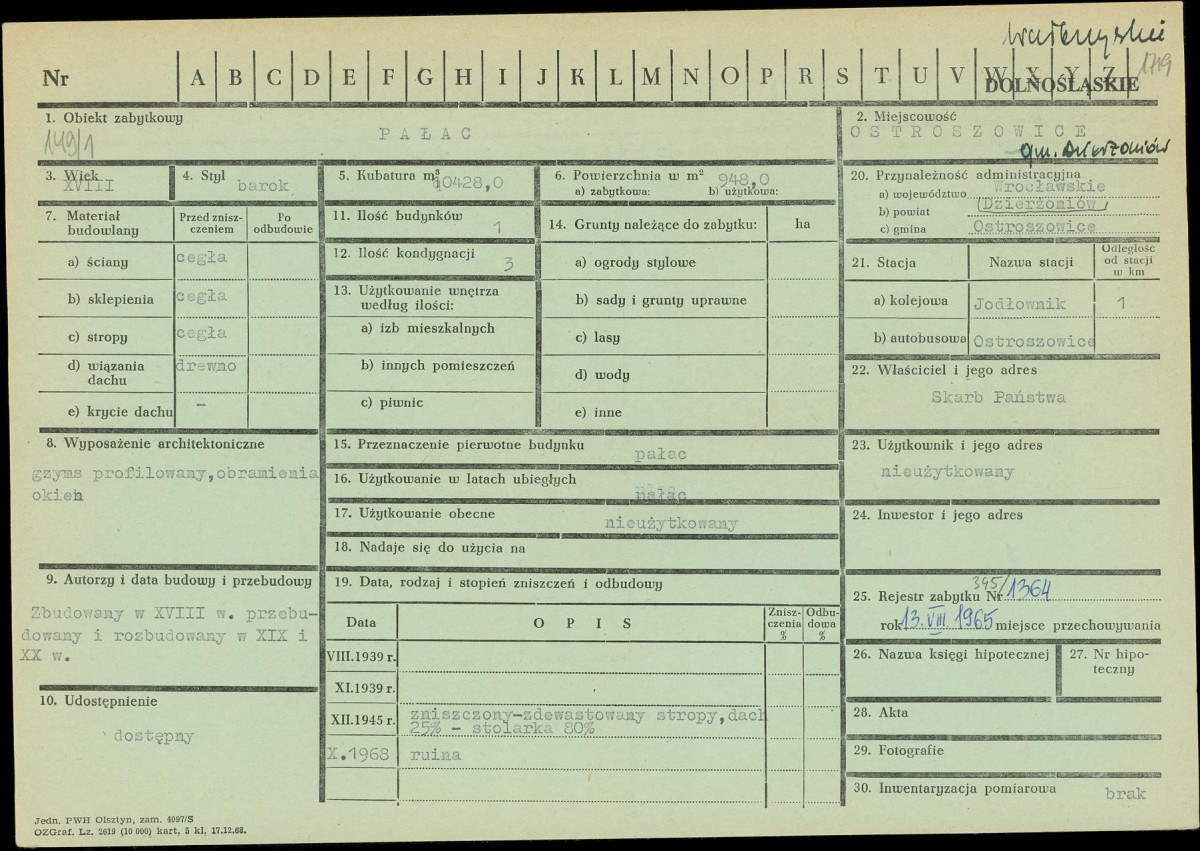 wałbrzyskie
Nr A B C D E F G H I J K L M N O P R S T U V W X Y Z 1719
DOLNOŚLĄSKIE
1. Obiekt zabytkowy
149/1
PAŁAC
2. Miejscowość
OSTROSZOWICE
gm. Dzierżoniów
3. Wiek
XVIII
4. Styl
barok
5. Kubatura m³
10428,0
6. Powierzchnia w m²
a) zabytkowa: b) użytkowa:
948,0
20. Przynależność administracyjna
a) województwo Wrocławskie
b) powiat Dzierżoniów
c) gmina Ostroszowice
7. Materiał budowlany
Przed znisz-
czeniem
Po
odbudowie
a) ściany cegła
b) sklepienia cegła
c) stropy cegła
d) wiązania
dachu drewno
e) krycie dachu –
11. Ilość budynków 1
12. Ilość kondygnacji 3
13. Użytkowanie wnętrza
według ilości:
a) izb mieszkalnych
b) innych pomieszczeń
c) piwnic
14. Grunty należące do zabytku: ha
a) ogrody stylowe
b) sady i grunty uprawne
c) lasy
d) wody
e) inne
21. Stacja
Nazwa stacji
Odległość
od stacji
w km
a) kolejowa Jodłownik 1
b) autobusowa Ostroszowice
22. Właściciel i jego adres
Skarb Państwa
8. Wyposażenie architektoniczne
gzyms profilowany,obramienia
okien
15. Przeznaczenie pierwotne budynku
pałac
16. Użytkowanie w latach ubiegłych
pałac
17. Użytkowanie obecne
nieużytkowany
18. Nadaje się do użycia na
23. Użytkownik i jego adres
nieużytkowany
24. Inwestor i jego adres
9. Autorzy i data budowy i przebudowy
Zbudowany w XVIII w. przebu-
dowany i rozbudowany w XIX i
XX w.
10. Udostępnienie
dostępny
19. Data, rodzaj i stopień zniszczeń i odbudowy
Data
OPIS
Znisz-
czenia
%
Odbu-
dowa
%
VIII.1939 r.
XI.1939 r.
XII.1945 r. zniszczony-zdewastowany stropy,dach
25% - stolarka 80%
X.1968 ruina
25. Rejestr zabytku Nr 395/1364
rok 13.VIII.1965 miejsce przechowywania
26. Nazwa księgi hipotecznej
27. Nr hipo-
teczny
28. Akta
29. Fotografie
30. Inwentaryzacja pomiarowa
brak
Jedn. PWH Olsztyn, zam. 4097/S
OZGraf. Lz. 2619 (10 000) kart, 5 kl. 17.12.68.